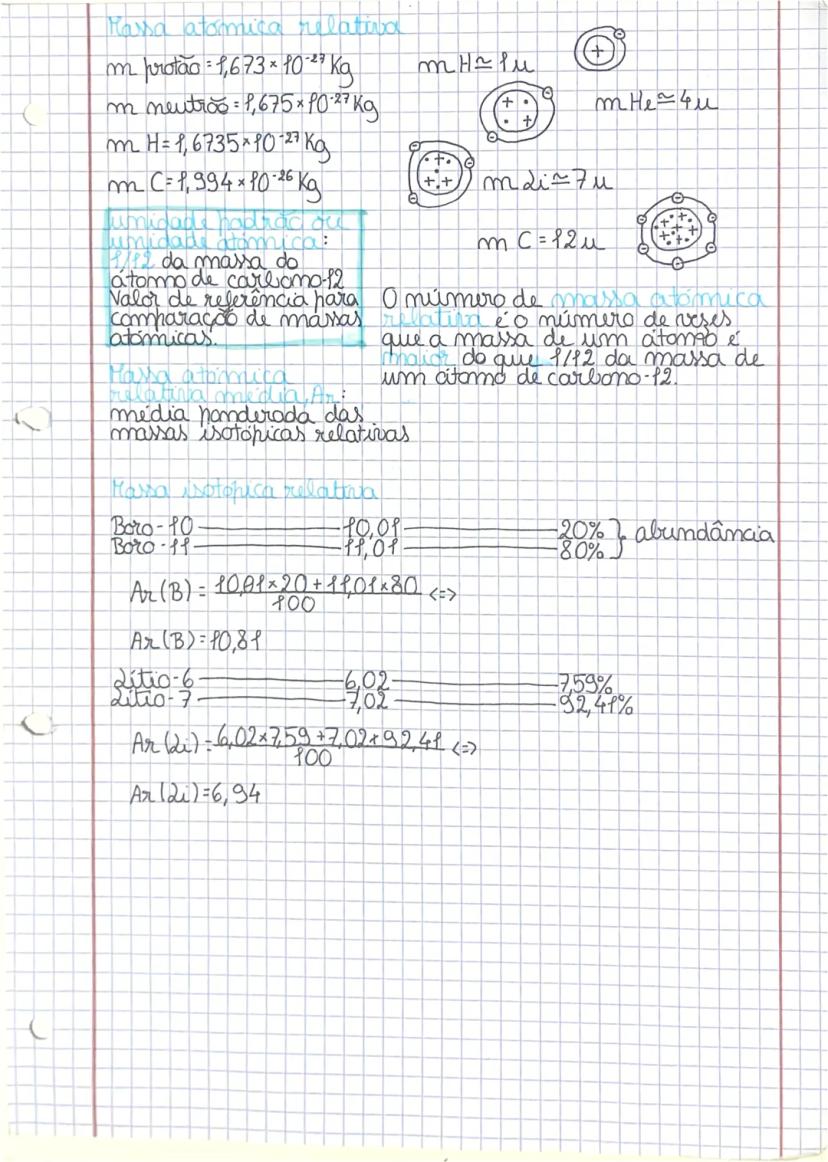 Massa atómica relativa
m protão = 1,673 × 10⁻²⁷ Kg
m neutrão = 1,675 × 10⁻²⁷ Kg
m H = 1,6735 × 10⁻²⁷ Kg
m C = 1,994 × 10⁻²⁶ Kg
m H ≃ 1u
m He ≃ 4u
m Li ≃ 7u
m C = 12u
unidade padrão ou
unidade atómica:
1/12 da massa do
átomo de carbono-12
Valor de referência para
comparação de massas
atómicas.
O número de massa atómica
relativa é o número de vezes
que a massa de um átomo é
maior do que 1/12 da massa de
um átomo de carbono-12.
Massa atómica
relativa média, Ar:
média ponderada das
massas isotópicas relativas
Massa isotópica relativa
Boro-10 — 10,01 — 20%
Boro-11 — 11,01 — 80%
} abundância
Ar(B) = 10,01×20 + 11,01×80 / 100 <=>
Ar(B) = 10,81
Lítio-6 — 6,02 — 7,59%
Lítio-7 — 7,02 — 92,41%
Ar(Li) = 6,02×7,59 + 7,02×92,41 / 100 <=>
Ar(Li) = 6,94